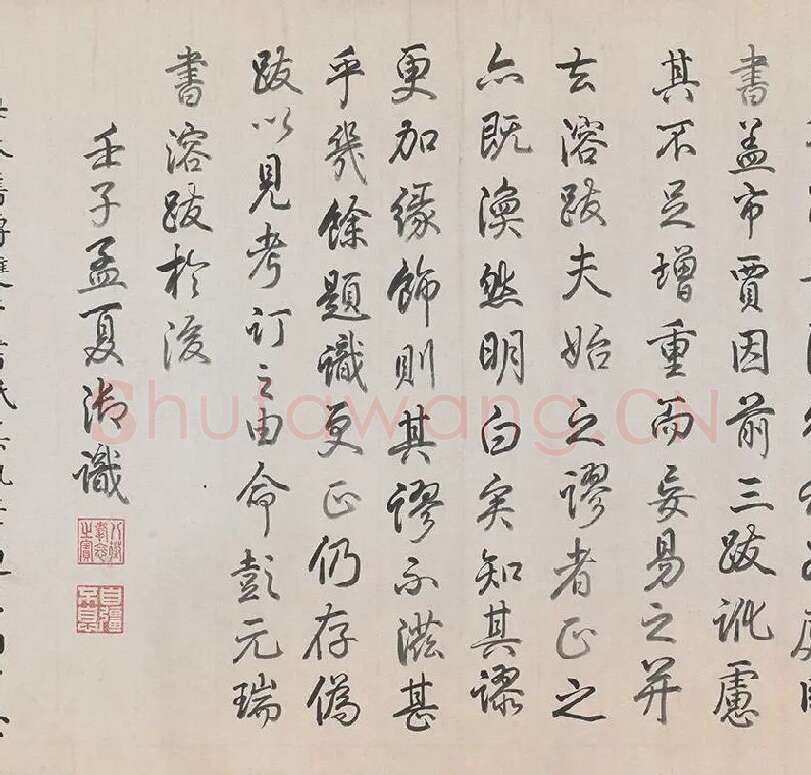 書蓋市賈因前三跋訛慮
其不足增重而妄易之并
去溶跋夫始之謬者正之
亦既渙然明白矣知其謬
更加緣飾則其謬不滋甚
乎幾餘題識更正仍存偽
跋以見考訂之由命彭元瑞
書溶跋於後
壬子孟夏御識
八徵耄念之寶
自彊不息
Shufawang.CN